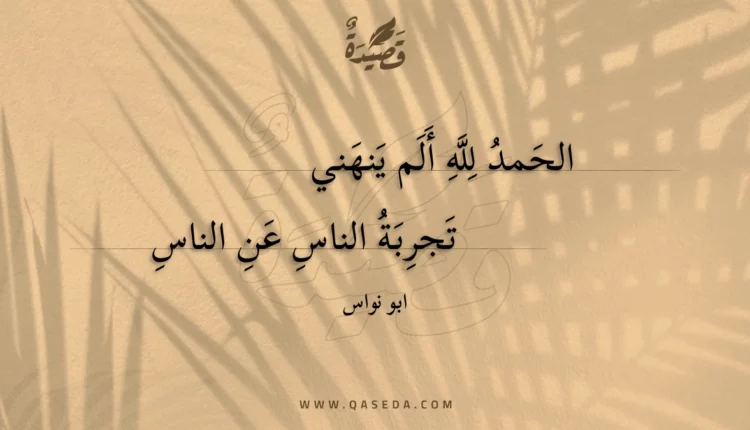 قَصِيدَةٌ
الحَمدُ لِلَّهِ أَلَم يَنهَني
تَجرِبَةُ الناسِ عَنِ الناسِ
ابو نواس
WWW.QASEDA.COM